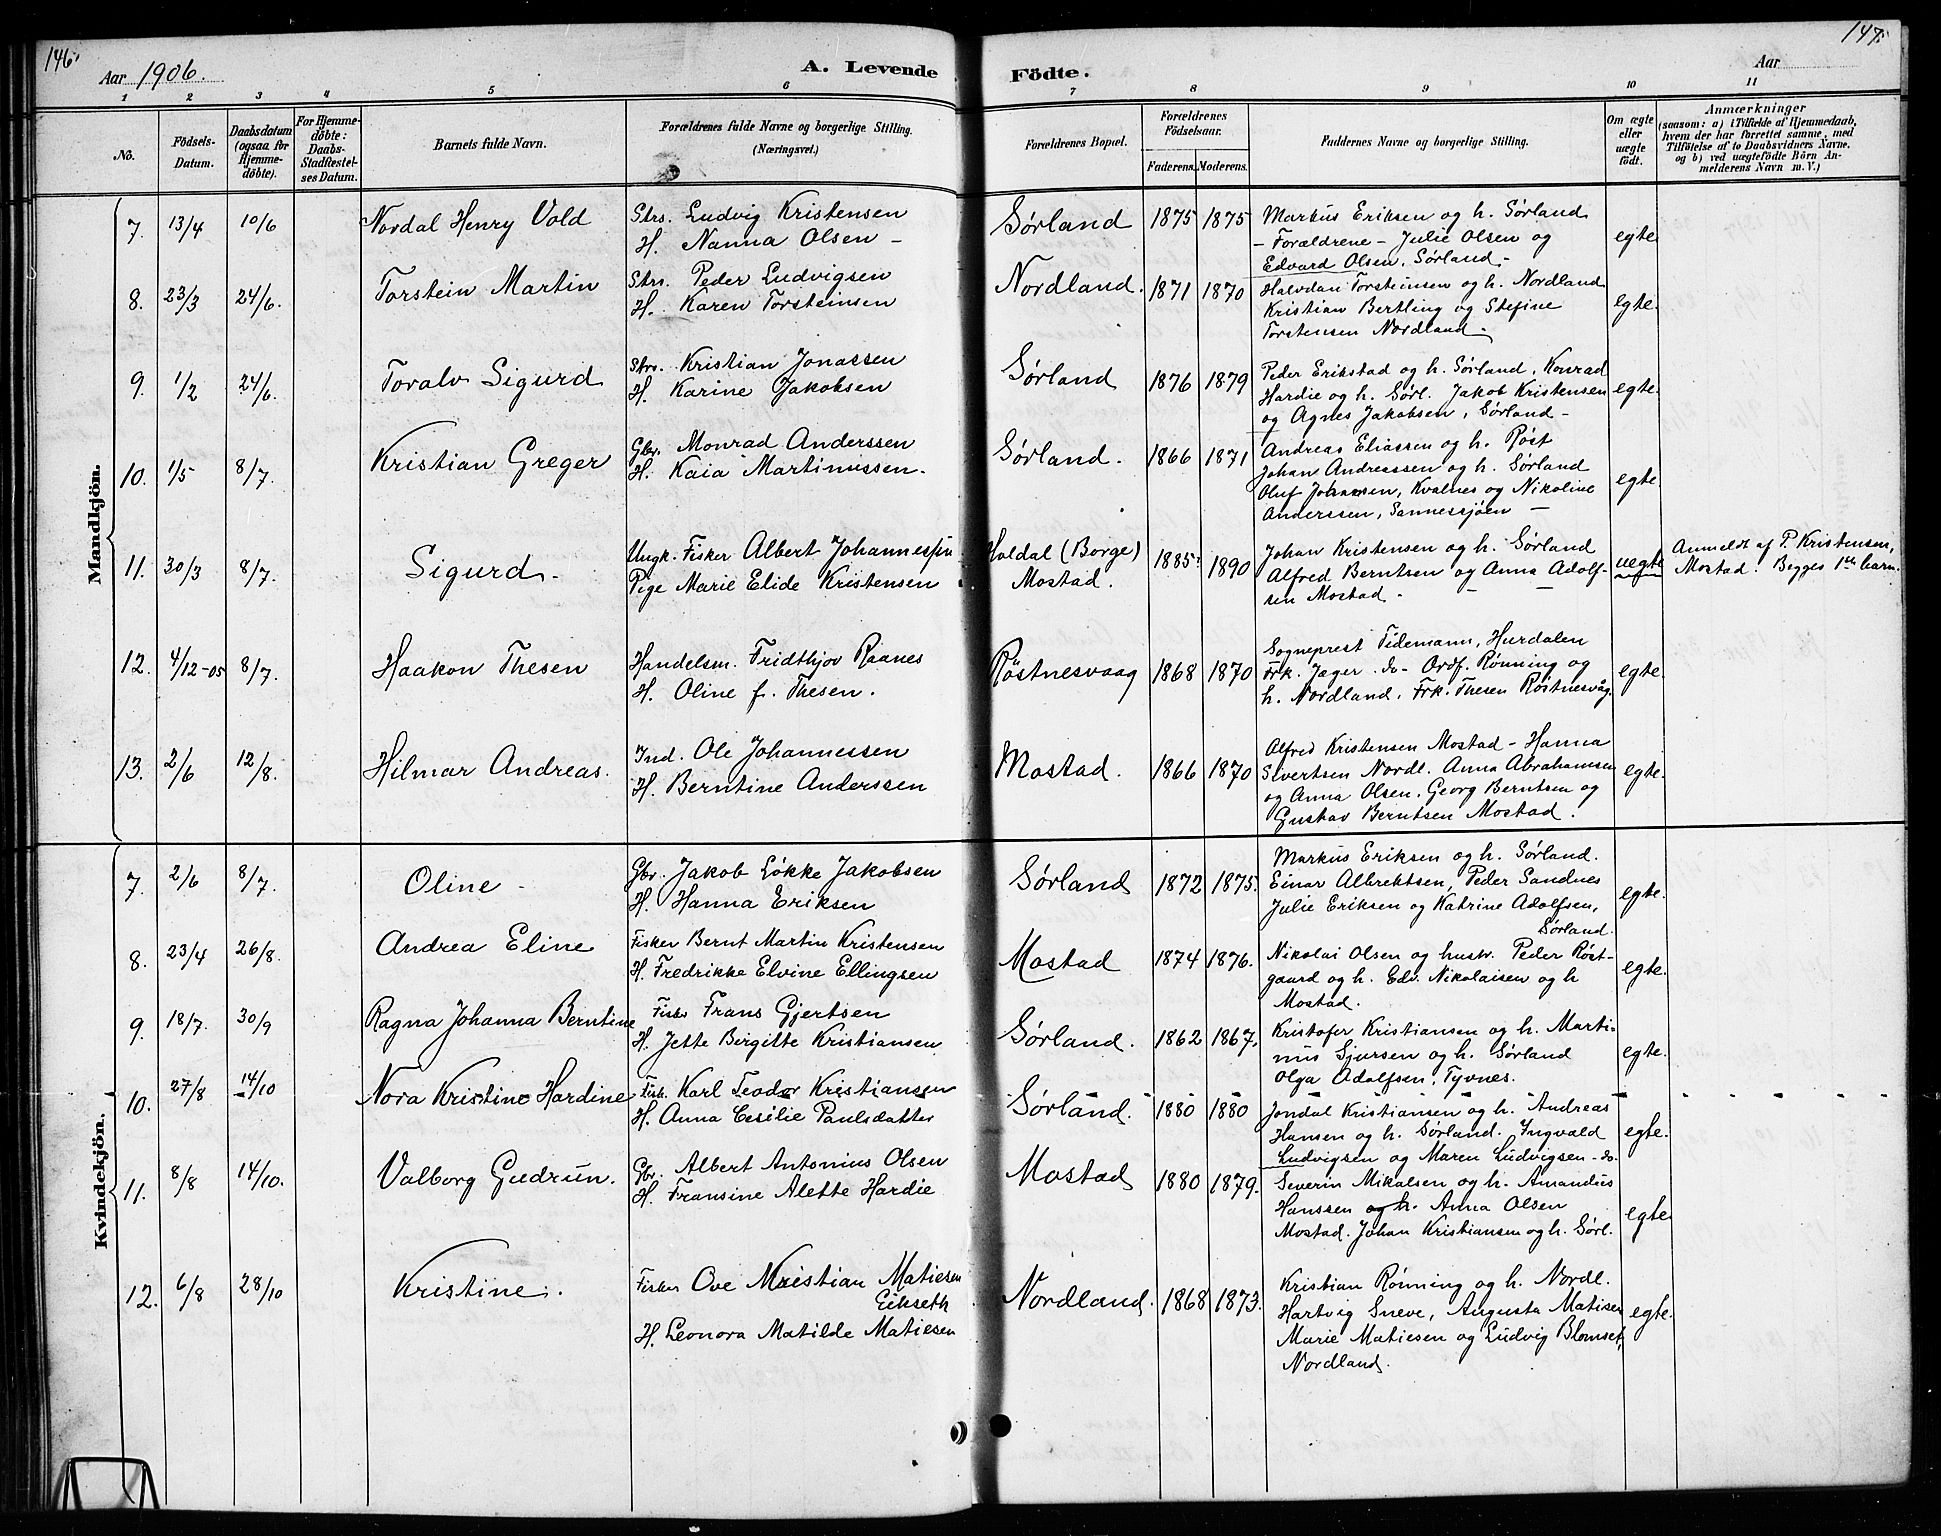 146.
147.
Aar 1906.
A. Levende
Födte.
Aar
1 2 3 4 5 6 7 8 9 10 11
No.
Födsels-
Datum.
Daabsdatum
(ogsaa for
Hjemme-
döbte).
For Hjemme-
döbte:
Daabs-
Stadfæstel-
ses Datum.
Barnets fulde Navn.
Forældrenes fulde Navne og borgerlige Stilling.
(Næringsvei.)
Forældrenes Bopæl.
Forældrenes
Födselsaar.
Faderens. Moderens.
Faddernes Navne og borgerlige Stilling.
Om ægte
eller
uægte
födt.
Anmærkninger
(saasom: a) i Tilfælde af Hjemmedaab,
hvem der har forrettet samme, med
Tilföielse af to Daabsvidners Navne,
og b) ved uægtefödte Börn An-
melderens Navn m. V.)
Mandkjön.
7. 13/4 10/6 Nordal Henry Vold
Strs. Ludvig Kristensen
H. Nanna Olsen -
Sørland 1875 1875
Markus Eriksen og h. Sørland
- Forældrene - Julie Olsen og
Edvard Olsen, Sørland -
egte
8. 23/3 24/6. Torstein Martin
Strs. Peder Ludvigsen
H. Karen Torsteinsen
Nordland. 1871 1870
Halvdan Torsteinsen og h. Nordland
Kristian Bertling og Stefine
Torstensen Nordland -
egte.
9. 1/2 24/6. Toralv Sigurd
Strs. Kristian Jonassen
H. Karine Jakobsen
Sørland 1876 1879
Peder Erikstad og h. Sørland, Konrad
Hardie og h. Sørl. Jakob Kristensen
og Agnes Jakobsen, Sørland -
egte.
10. 1/5 8/7. Kristian Greger
Gbr. Monrad Anderssen
H. Kaia Martinussen.
Sørland. 1866 1871
Andreas Eliassen og h. Røst
Johan Andreassen og h. Sørland
Oluf Johansen, Kvalnes og Nikoline
Anderssen, Sannessjøen -
egte.
11. 30/3 8/7. Sigurd -
Ungk. Fisker Albert Johannessen
Pige Marie Elide Kristensen
Haldal (Borge)
Mostad. 1885 1890
Johan Kristensen og h. Sørland
Alfred Berntsen og Anna Adolf-
sen Mostad -
uegte
Anmeldt af P. Kristensen,
Mostad. Begges 1ste barn.
12. 4/12-05 8/7. Haakon Thesen
Handelsm. Fridthjov Raanes
H. Oline f. Thesen.
Røstnesvaag 1868 1870
Sogneprest Tidemann, Hurdalen
Frk. Jæger do - Ordf. Rønning og
h. Nordland, Frk. Thesen Røstnesvåg.
egte.
13. 2/6 12/8. Hilmar Andreas.
Ind. Ole Johannessen
H. Berntine Anderssen
Mostad. 1866 1870
Alfred Kristensen Mostad - Hanna
Sivertsen Nordl. Anna Abrahamsen
og Anna Olsen. Georg Berntsen og
Gustav Berntsen Mostad.
egte.
Kvindekjön.
7. 2/6 8/7. Oline -
Gbr. Jakob Løkke Jakobsen
H. Hanna Eriksen
Sørland 1872 1875.
Markus Eriksen og h. Sørland.
Einar Albrektsen, Peder Sandnes
Julie Eriksen og Katrine Adolfsen,
Sørland.
egte.
8. 23/4 26/8. Andrea Eline
Fisker Bernt Martin Kristensen
H. Fredrikke Elvine Ellingsen
Mostad 1874 1876.
Nikolai Olsen og hustr. Peder Røst-
gaard og h. Edv. Nikolaisen og h
Mostad.
egte.
9. 18/7. 30/9 Ragna Johanna Berntine
Fisker Frans Gjertsen
H. Jette Birgitte Kristiansen
Sørland. 1862 1867.
Kristofer Kristiansen og h. Marti-
nus Sjursen og h. Sørland
Olga Adolfsen, Tyvnes.
egte.
10. 27/8 14/10 Nora Kristine Hardine
Fisk. Karl Teodor Kristiansen
H. Anna Cesilie Paulsdatter
Sørland. 1880 1880
Jondal Kristiansen og h. Andreas
Hansen og h. Sørland. Ingvald
Ludvigsen og Maren Ludvigsen - do.
egte.
11. 8/8 14/10. Valborg Gudrun.
Gbr. Albert Antonius Olsen
H. Fransine Alette Hardie
Mostad 1880 1879.
Severin Mikalsen og h. Amandus
Hanssen og h. Anna Olsen
Mostad. Johan Kristiansen og h. Sørl.
egte
12. 6/8 28/10 Kristine.
Fisker Ove Kristian Matiesen
Eikseth
H. Leonora Matilde Matiesen
Nordland. 1868 1873.
Kristian Rønning og h. Nordl.
Hartvig Sneve, Augusta Matisen
Marie Matiesen og Ludvig Blomset,
Nordland.
egte.